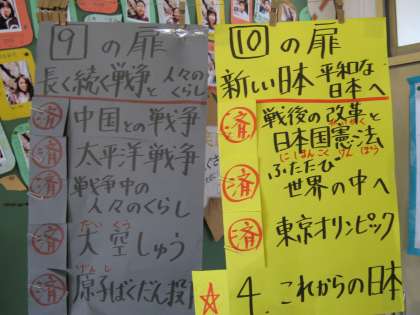 9 の扉
長く続く戦争と 人々の
くらし
済 中国との戦争
済 太平洋戦争
済 戦争中の
人々のくらし
だい くう
済 大空しゅう
げんし
済 原子ばくだん投
10 の扉
新しい日本 平和な
日本へ
済 戦後の改革と
かいかく
日本国憲法
にほんこくけんぽう
済 ふたたび
世界の中へ
済 東京オリンピック
4. これからの日本